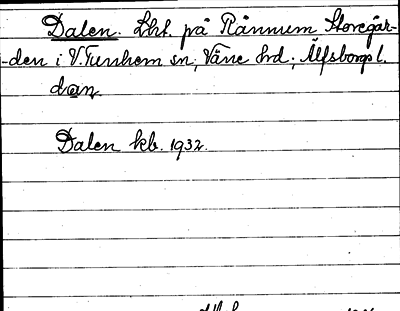 Dalen. Lht. på Rånnum Storegår-
-den i V. Tunhem sn, Väne hrd, Älfsborgs l.
dan
Dalen kb. 1932.